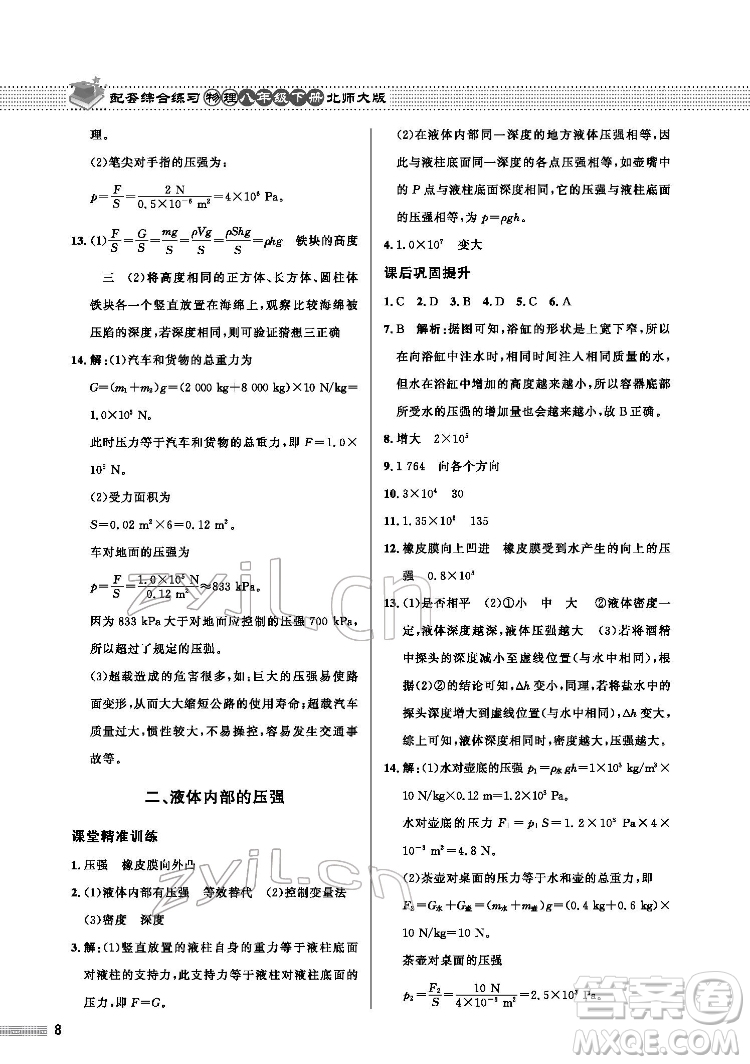 配套综合练习 物理 八年级下册 北师大版
理。
(2)笔尖对手指的压强为：
p=F/S=2 N/0.5×10⁻⁶ m²=4×10⁶ Pa。
13. (1)F/S=G/S=mg/S=ρVg/S=ρShg/S=ρhg 铁块的高度
三 (2)将高度相同的正方体、长方体、圆柱体
铁块各一个竖直放置在海绵上，观察比较海绵被
压陷的深度，若深度相同，则可验证猜想三正确
14. 解：(1)汽车和货物的总重力为
G=(m₁+m₂)g=(2 000 kg+8 000 kg)×10 N/kg=
1.0×10⁵ N。
此时压力等于汽车和货物的总重力，即 F=1.0×
10⁵ N。
(2)受力面积为
S=0.02 m²×6=0.12 m²。
车对地面的压强为
p=F/S=1.0×10⁵ N/0.12 m²≈833 kPa。
因为 833 kPa大于对地面应控制的压强700 kPa，
所以超过了规定的压强。
(3)超载造成的危害很多，如：巨大的压强易使路
面变形，从而大大缩短公路的使用寿命；超载汽车
质量过大，惯性较大，不易操控，容易发生交通事
故等。
二、液体内部的压强
课堂精准训练
1. 压强 橡皮膜向外凸
2. (1)液体内部有压强 等效替代 (2)控制变量法
(3)密度 深度
3. 解：(1)竖直放置的液柱自身的重力等于液柱底面
对液柱的支持力，此力等于液柱对液柱底面的
压力，即F=G。
8
(2)在液体内部同一深度的地方液体压强相等，
故与液柱底面同一深度的各点压强相等，如壶嘴中
的 P 点与液柱底面深度相同，其压强与液柱底面
的压强相等，为 p=ρgh。
4. 1.0×10⁷ 变大
课后巩固提升
1. C 2. D 3. B 4. D 5. C 6. A
7. B 解析：据图可知，浴缸的形状是上宽下窄，所以
在向浴缸中注水时，相同时间注入相同质量的水，
但水在浴缸中增加的高度越来越小，所以容器底部
所受水的压强的增加量也越来越小，故 B正确。
8. 增大 2×10⁵
9. 1 764 向各个方向
10. 3×10⁴ 30
11. 1.35×10⁶ 135
12. 橡皮膜向上凹进 橡皮膜受到水产生的向上的压
强 0.8×10³
13. (1)是否相平 (2)①小 中 大 ②液体密度一
定，液体深度越深，液体压强越大 (3)若将酒精
中探头的深度减小至虚线位置(与水中相同)，
由(2)②的结论可知，Δh 变小，同理，若将盐水中的
探头深度增大到虚线位置(与水中相同)，Δh 变大，
综上可知，在深度相同时，密度越大，压强越大。
14. 解：(1)水对壶底的压强 p₁=ρ水gh=1×10³ kg/m³×
10 N/kg×0.12 m=1.2×10³ Pa。
水对壶底的压力 F₁=p₁S=1.2×10³ Pa×4×
10⁻³ m²=4.8 N。
(2)茶壶对桌面的压力等于水和壶的总重力，即
F₂=G水+G壶=(m水+m壶)g=(0.4 kg+0.6 kg)×
10 N/kg=10 N。
茶壶对桌面的压强
p₂=F₂/S=10 N/4×10⁻³ m²=2.5×10³ Pa。
zyjl.cn
zyjl.cn
答案卷